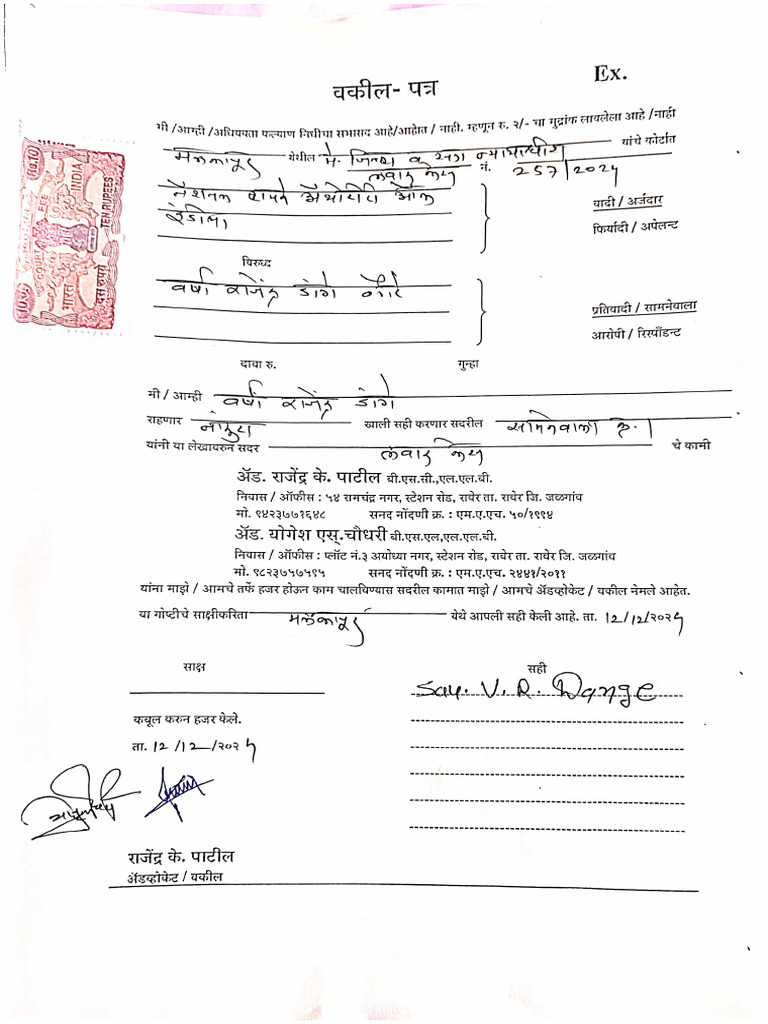 Ex.
वकील- पत्र
मी /आम्ही /अधिवक्ता कल्याण निधीचा सभासद आहे/आहोत / नाही. म्हणून रु. २/- चा मुद्रांक लावलेला आहे /नाही
मलकापूर येथील मे. जिल्हा व सत्र न्यायाधीश यांचे कोर्टात
लवाद केस नं. 257/2024
नॅशनल हायवे ॲथोरीटी ऑफ वादी / अर्जदार
इंडीया फिर्यादी / अपेलन्ट
विरुध्द
वर्षा राजेंद्र डांगे वगैरे
प्रतिवादी / सामनेवाला
आरोपी / रिस्पाँडन्ट
दावा रु. गुन्हा
मी / आम्ही वर्षा राजेंद्र डांगे
राहणार नांदुरा खाली सही करणार सदरील सामनेवाला क्र. 1
यांनी या लेखावरुन सदर लवाद केस चे कामी
ॲड. राजेंद्र के. पाटील बी.एस.सी.,एल.एल.बी.
निवास / ऑफीस : ५४ रामचंद्र नगर, स्टेशन रोड, रावेर ता. रावेर जि. जळगांव
मो. ९४२३७७१६४८ सनद नोंदणी क्र. : एम.ए.एच. ५०/१९९४
ॲड. योगेश एस्.चौधरी बी.एस.एल,एल.एल.बी.
निवास / ऑफीस : प्लॉट नं.३ अयोध्या नगर, स्टेशन रोड, रावेर ता. रावेर जि. जळगांव
मो. ९८२३७५७५९५ सनद नोंदणी क्र. : एम.ए.एच. २४४१/२०११
यांना माझे / आमचे तर्फे हजर होऊन काम चालविण्यास सदरील कामात माझे / आमचे ॲडव्होकेट / वकील नेमले आहेत.
या गोष्टीचे साक्षीकरिता मलकापूर येथे आपली सही केली आहे. ता. 12/12/२०२५
साक्ष सही
Say. V. R. Dange
कबूल करुन हजर केले.
ता. 12/12/२०२५
राजेंद्र के. पाटील
ॲडव्होकेट / वकील
Rs.10
INDIA
COURT FEE
TEN RUPEES
भारत
दस रुपये